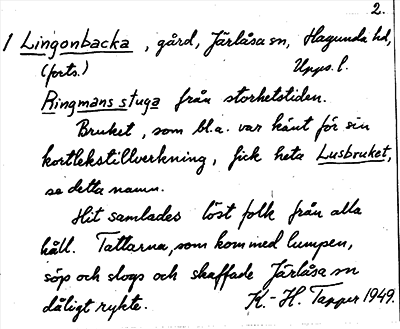 2.
1 Lingonbacka, gård, Järlåsa sn, Hagunda hd,
(forts.) Upps. l.
Ringmans stuga från storhetstiden.
Bruket, som bl.a. var känt för sin
kortlekstillverkning, fick heta Lusbruket,
se detta namn.
Hit samlades löst folk från alla
håll. Tattarna, som kom med lumpen,
söp och slogs och skaffade Järlåsa sn
dåligt rykte. K.-H. Tapper 1949.